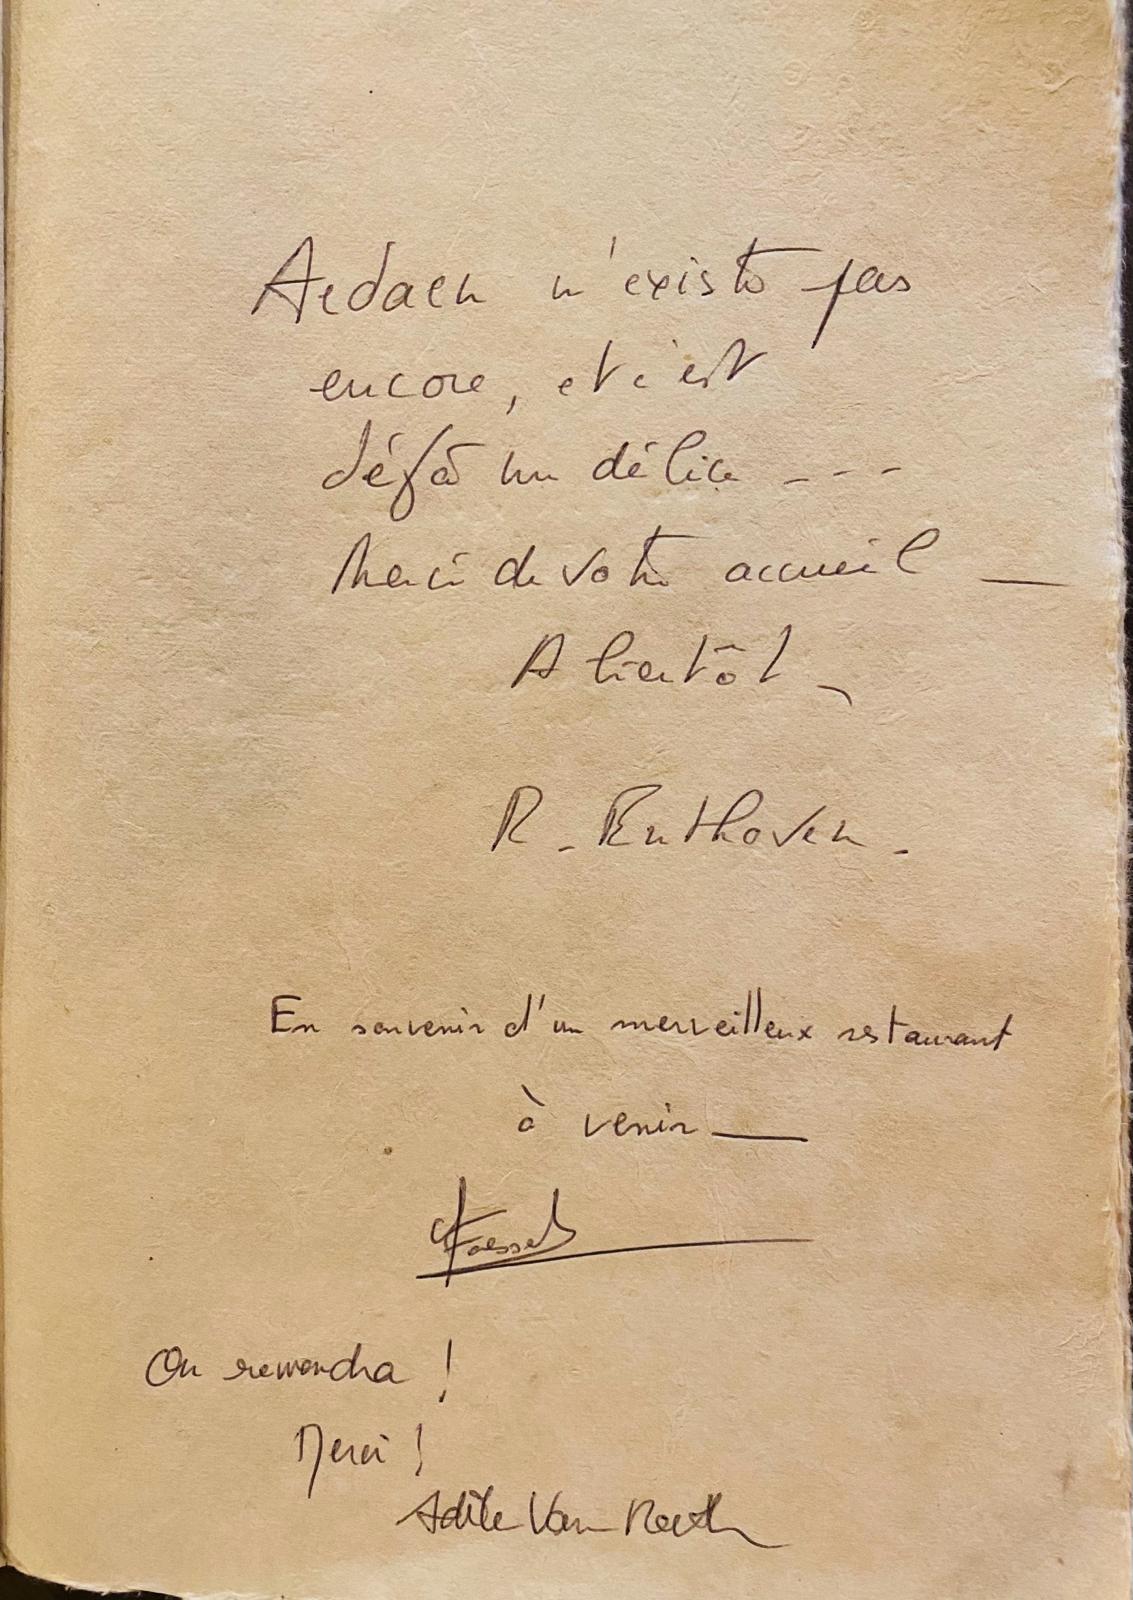 Aedaen n'existe pas
encore, et c'est
déjà un délice ---
Merci de votre accueil —
A bientôt
R. Enthoven.
En souvenir d'un merveilleux restaurant
à venir —
Foessel
On reviendra !
Merci !
Adèle Van Reeth